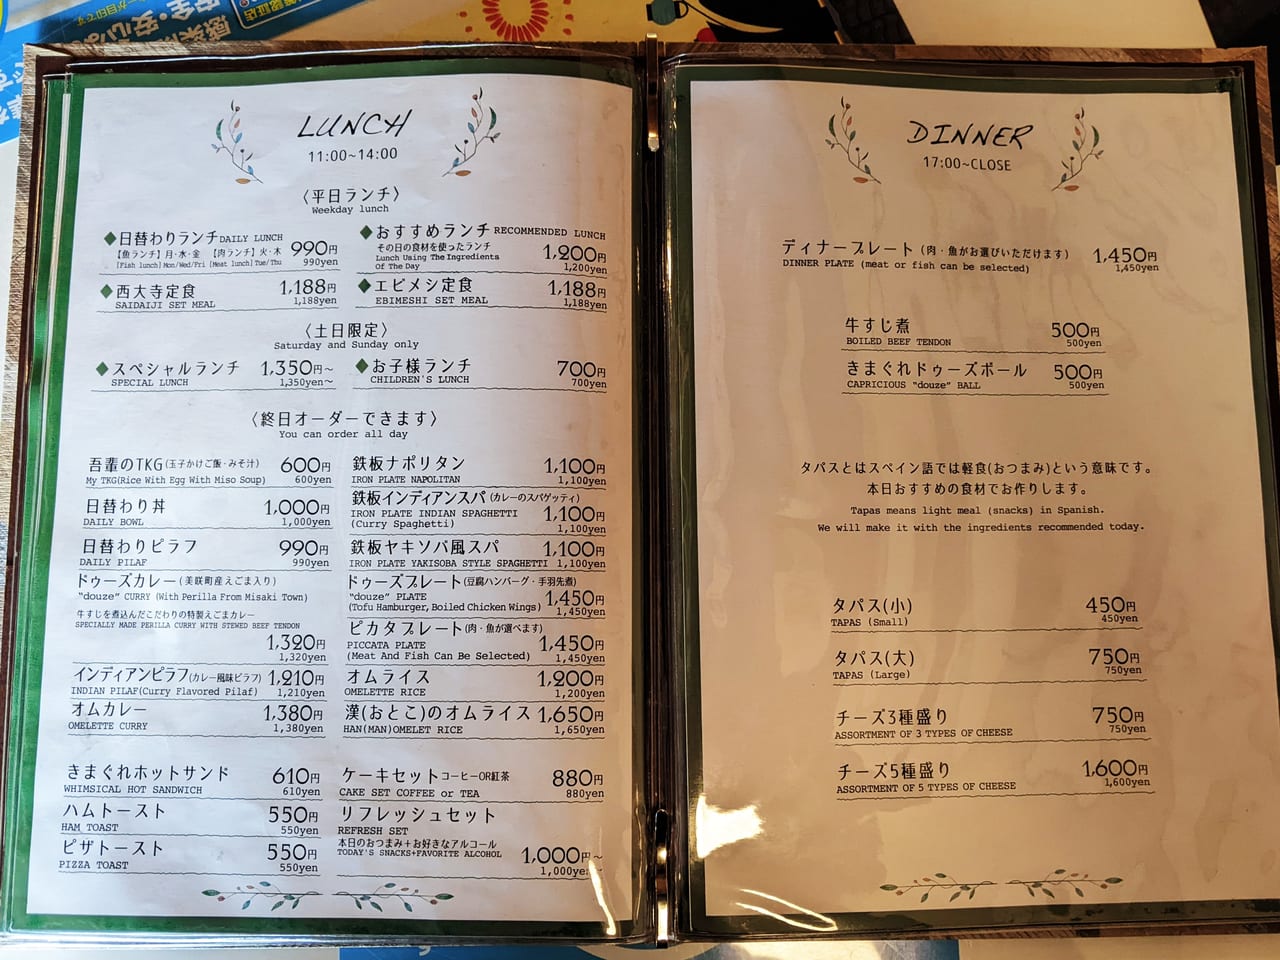 LUNCH
11:00~14:00
〈平日ランチ〉
Weekday lunch
◆日替わりランチ DAILY LUNCH 990円
【魚ランチ】月・水・金 【肉ランチ】火・木
[Fish lunch] Mon/Wed/Fri [Meat lunch] Tue/Thu 990yen
◆おすすめランチ RECOMMENDED LUNCH
その日の食材を使ったランチ 1,200円
Lunch Using The Ingredients
Of The Day 1,200yen
◆西大寺定食 1,188円
SAIDAIJI SET MEAL 1,188yen
◆エビメシ定食 1,188円
EBIMESHI SET MEAL 1,188yen
〈土日限定〉
Saturday and Sunday only
◆スペシャルランチ 1,350円～
SPECIAL LUNCH 1,350yen～
◆お子様ランチ 700円
CHILDREN'S LUNCH 700yen
〈終日オーダーできます〉
You can order all day
吾輩のTKG(玉子かけご飯・みそ汁) 600円
My TKG(Rice With Egg With Miso Soup) 600yen
日替わり丼 1,000円
DAILY BOWL 1,000yen
日替わりピラフ 990円
DAILY PILAF 990yen
ドゥーズカレー(美咲町産えごま入り)
"douze" CURRY (With Perilla From Misaki Town)
牛すじを煮込んだこだわりの特製えごまカレー
SPECIALLY MADE PERILLA CURRY WITH STEWED BEEF TENDON
1,320円
1,320yen
インディアンピラフ(カレー風味ピラフ) 1,210円
INDIAN PILAF(Curry Flavored Pilaf) 1,210yen
オムカレー 1,380円
OMELETTE CURRY 1,380yen
きまぐれホットサンド 610円
WHIMSICAL HOT SANDWICH 610yen
ハムトースト 550円
HAM TOAST 550yen
ピザトースト 550円
PIZZA TOAST 550yen
鉄板ナポリタン 1,100円
IRON PLATE NAPOLITAN 1,100yen
鉄板インディアンスパ(カレーのスパゲッティ)
IRON PLATE INDIAN SPAGHETTI 1,100円
(Curry Spaghetti) 1,100yen
鉄板ヤキソバ風スパ 1,100円
IRON PLATE YAKISOBA STYLE SPAGHETTI 1,100yen
ドゥーズプレート(豆腐ハンバーグ・手羽先煮)
"douze" PLATE 1,450円
(Tofu Hamburger, Boiled Chicken Wings) 1,450yen
ピカタプレート(肉・魚が選べます)
PICCATA PLATE 1,450円
(Meat And Fish Can Be Selected) 1,450yen
オムライス 1,200円
OMELETTE RICE 1,200yen
漢(おとこ)のオムライス 1,650円
HAN(MAN)OMELET RICE 1,650yen
ケーキセット コーヒーOR紅茶 880円
CAKE SET COFFEE or TEA 880yen
リフレッシュセット
REFRESH SET
本日のおつまみ+お好きなアルコール
TODAY'S SNACKS+FAVORITE ALCOHOL 1,000円～
1,000yen
DINNER
17:00~CLOSE
ディナープレート(肉・魚がお選びいただけます) 1,450円
DINNER PLATE (meat or fish can be selected) 1,450yen
牛すじ煮 500円
BOILED BEEF TENDON 500yen
きまぐれドゥーズボール 500円
CAPRICIOUS "douze" BALL 500yen
タパスとはスペイン語では軽食(おつまみ)という意味です。
本日おすすめの食材でお作りします。
Tapas means light meal (snacks) in Spanish.
We will make it with the ingredients recommended today.
タパス(小) 450円
TAPAS (Small) 450yen
タパス(大) 750円
TAPAS (Large) 750yen
チーズ3種盛り 750円
ASSORTMENT OF 3 TYPES OF CHEESE 750yen
チーズ5種盛り 1,600円
ASSORTMENT OF 5 TYPES OF CHEESE 1,600yen